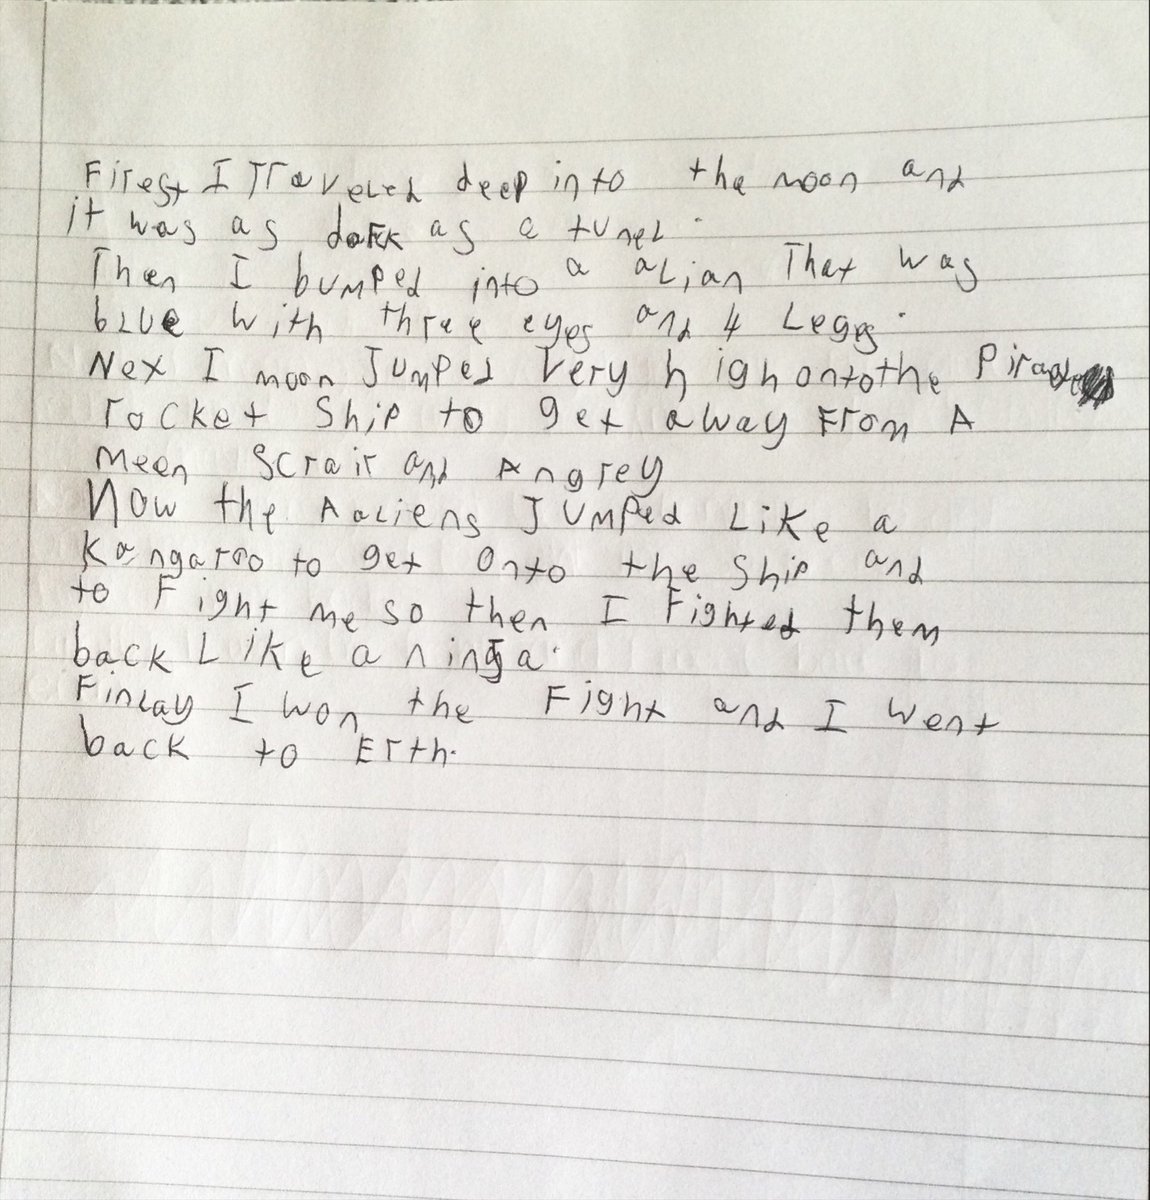 Firest I Traveled deep into the moon and
it was as dark as a tunel.
Then I bumped into a alian That was
blue with three eyes and 4 Legs.
Nex I moon Jumped Very high onto the
rocket Ship to get away From A
meen Scrair and Angrey
Now the Aaliens Jumped Like a
kangaroo to get Onto the Ship and
to Fight me so then I Fighted them
back Like a ninja.
Finlay I won the Fight and I went
back to Erth.